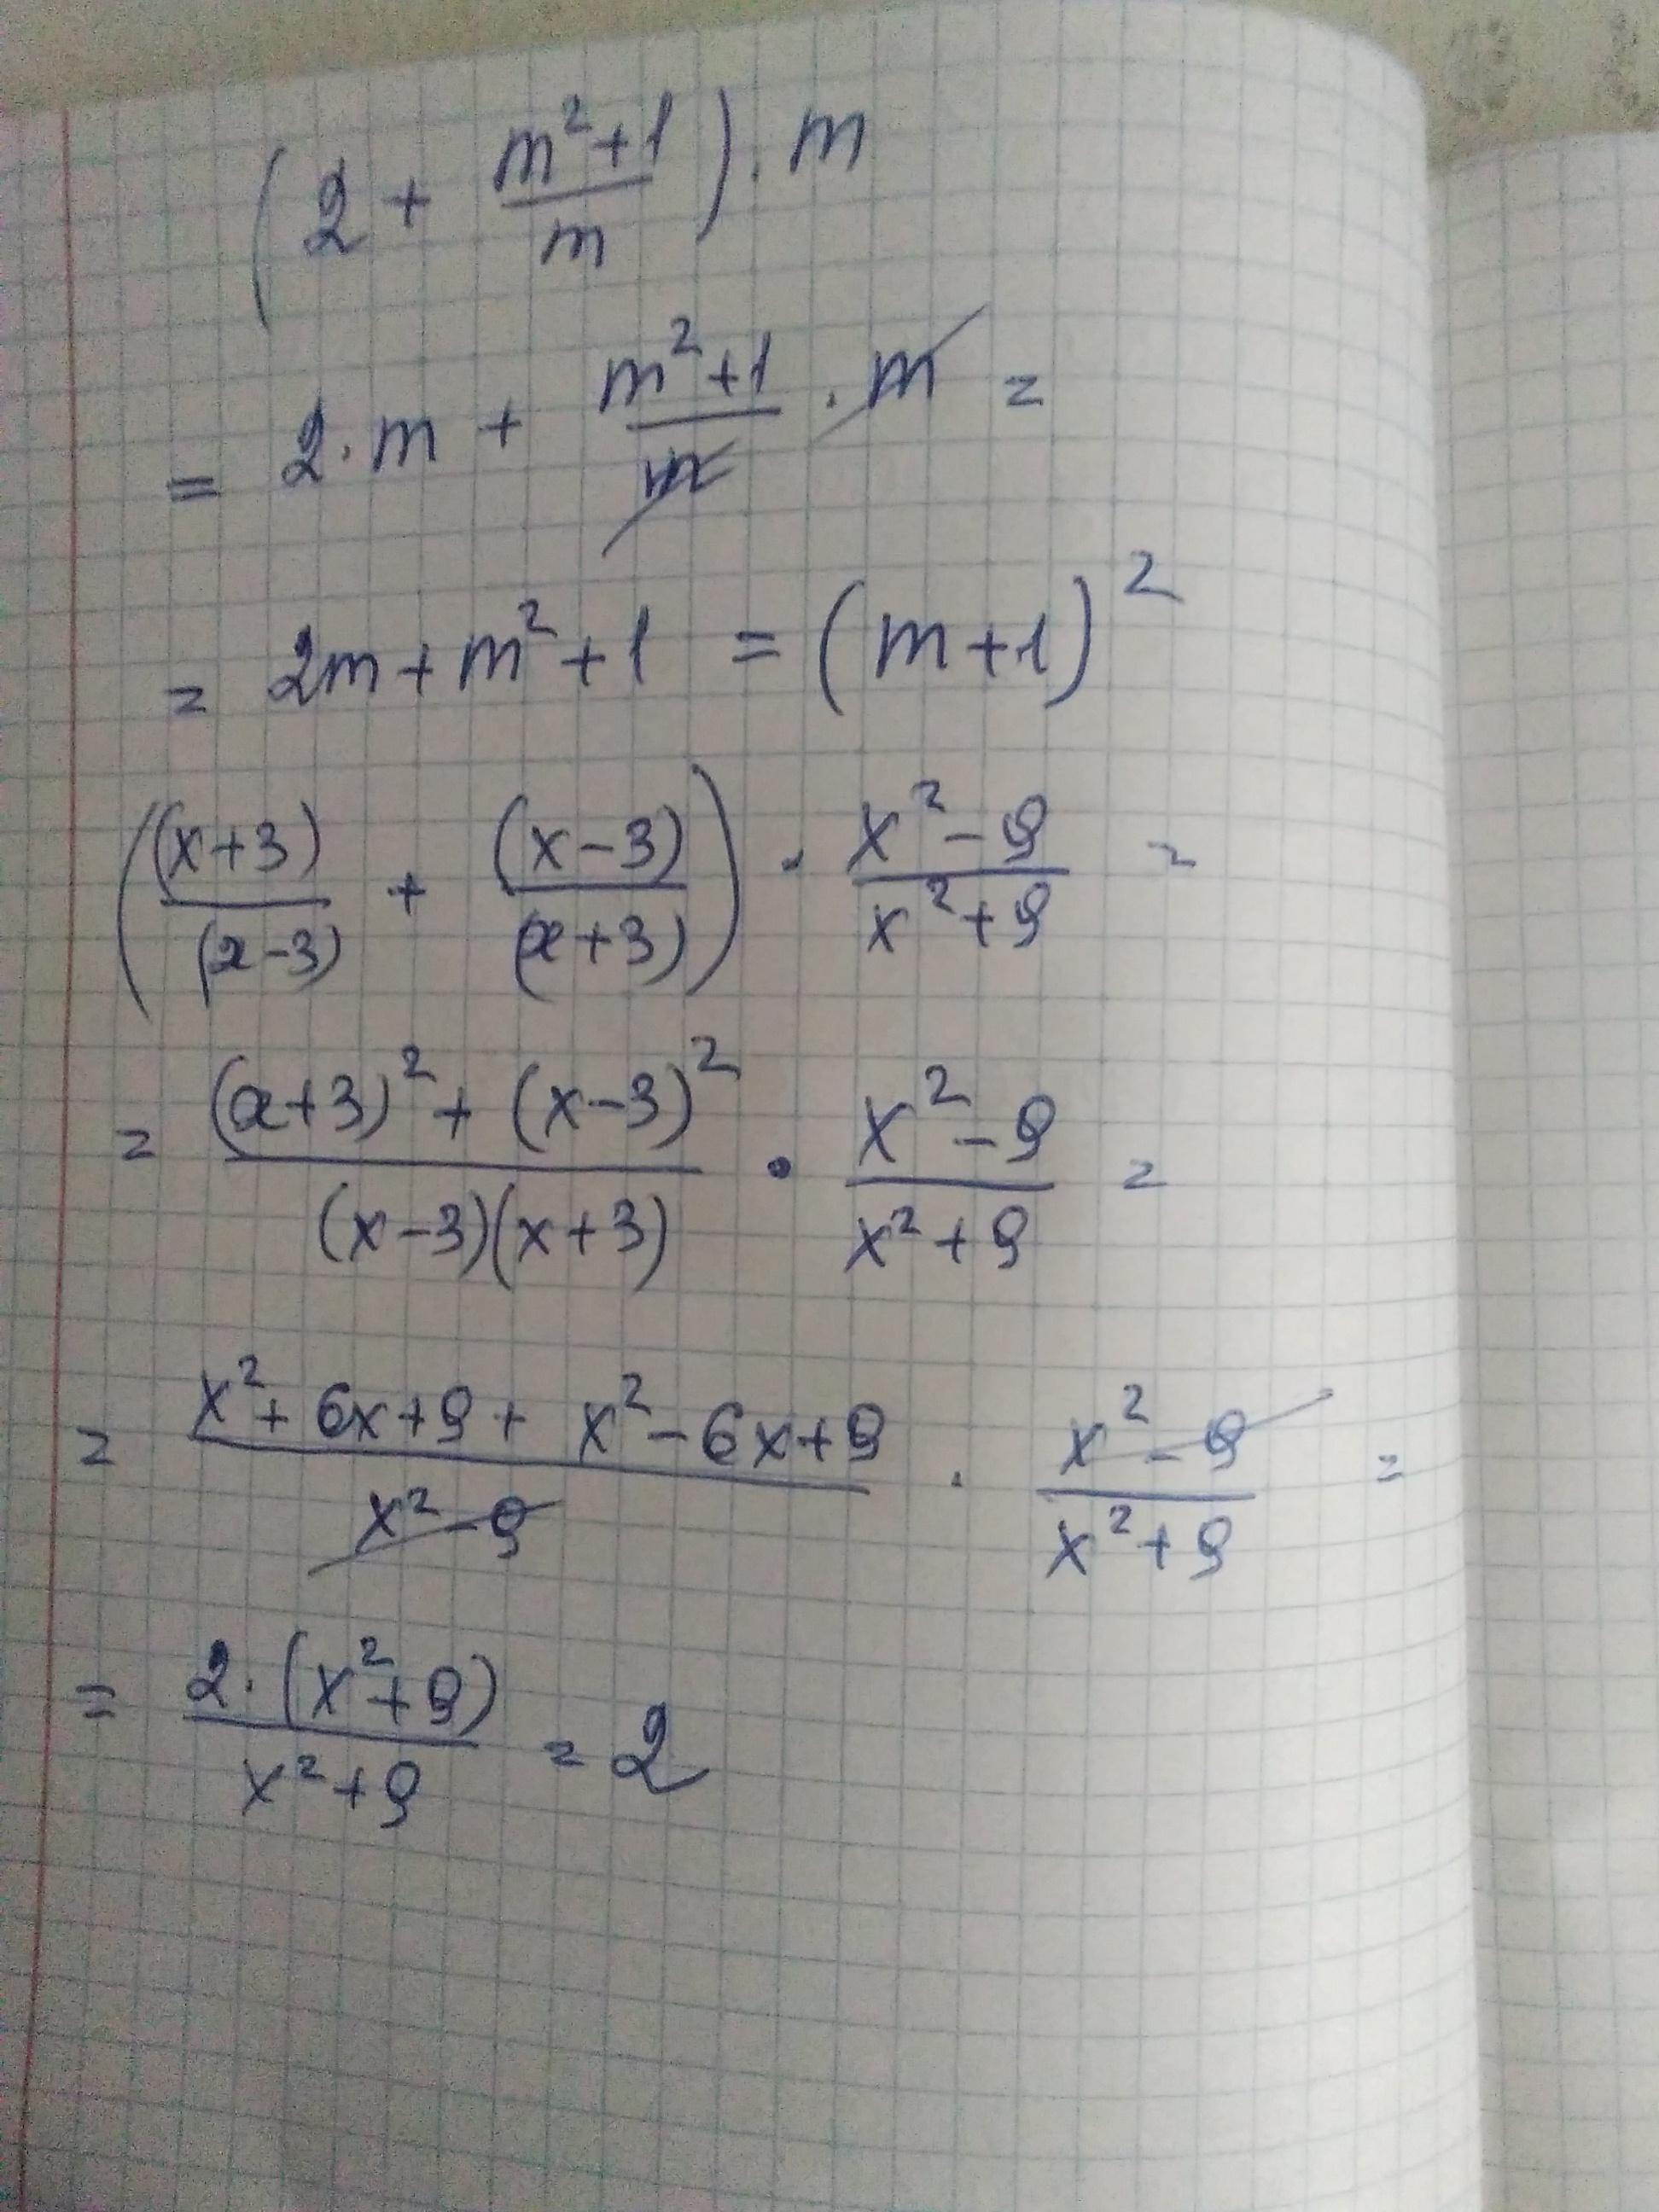 (2 + \frac{m^2+1}{m}) · m
= 2·m + \frac{m^2+1}{m} · m =
= 2m + m^2 + 1 = (m+1)^2
(\frac{(x+3)}{(x-3)} + \frac{(x-3)}{(x+3)}) · \frac{x^2-9}{x^2+9} =
= \frac{(x+3)^2 + (x-3)^2}{(x-3)(x+3)} · \frac{x^2-9}{x^2+9} =
= \frac{x^2+6x+9+x^2-6x+9}{x^2-9} · \frac{x^2-9}{x^2+9} =
= \frac{2·(x^2+9)}{x^2+9} = 2